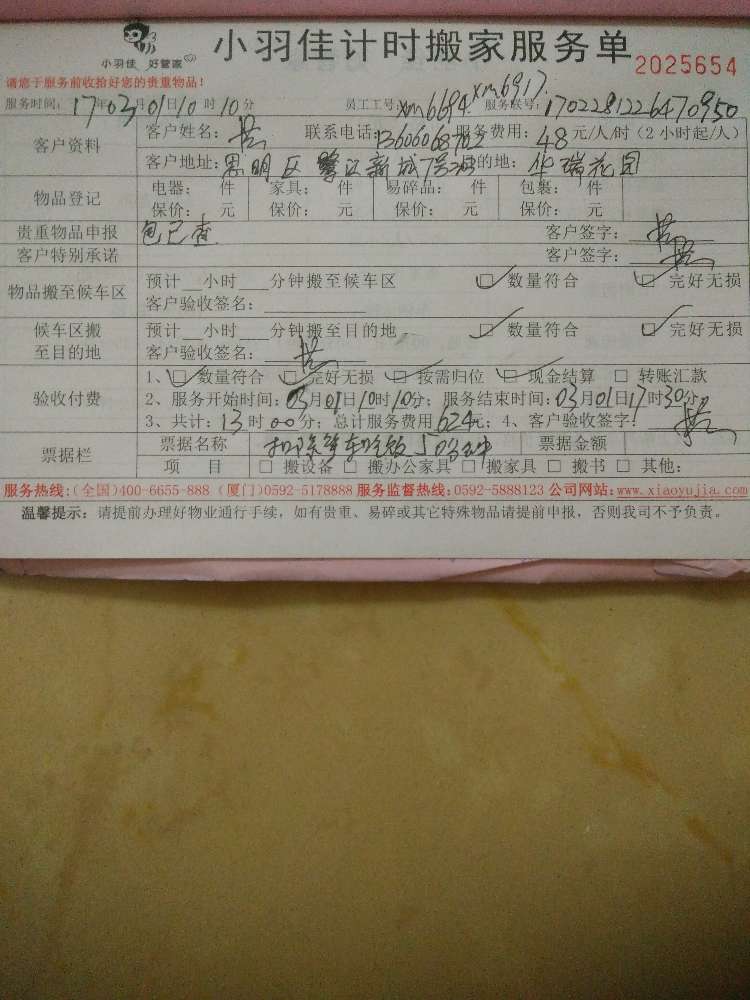 小羽佳 好管家
小羽佳计时搬家服务单 2025654
请您于服务前收拾好您的贵重物品！
服务时间：17年03月01日10时10分 员工工号：xm6694 xm6917 服务联号：1702281226470950
客户资料 客户姓名： 联系电话：13606068702 服务费用：48元/人/时（2小时起/人）
客户地址：思明区鹭江新城7号 目的地：华瑞花园
物品登记 电器： 件 家具： 件 易碎品： 件 包裹： 件
保价： 元 保价： 元 保价： 元 保价： 元
贵重物品申报 包已查 客户签字：
客户特别承诺 客户签字：
物品搬至候车区 预计__小时___分钟搬至候车区 数量符合 完好无损
客户验收签名：
候车区搬至目的地 预计__小时___分钟搬至目的地 数量符合 完好无损
客户验收签名：
验收付费 1、数量符合 完好无损 按需归位 现金结算 转账汇款
2、服务开始时间：03月01日10时10分；服务结束时间：03月01日17时30分
3、共计：13时00分；总计服务费用624元；4、客户验收签字：
票据栏 票据名称 50分钟 票据金额
项 目 搬设备 搬办公家具 搬家具 搬书 其他：
服务热线：(全国)400-6655-888 (厦门)0592-5178888 服务监督热线：0592-5888123 公司网站：www.xiaoyujia.com
温馨提示：请提前办理好物业通行手续，如有贵重、易碎或其它特殊物品请提前申报，否则我司不予负责。